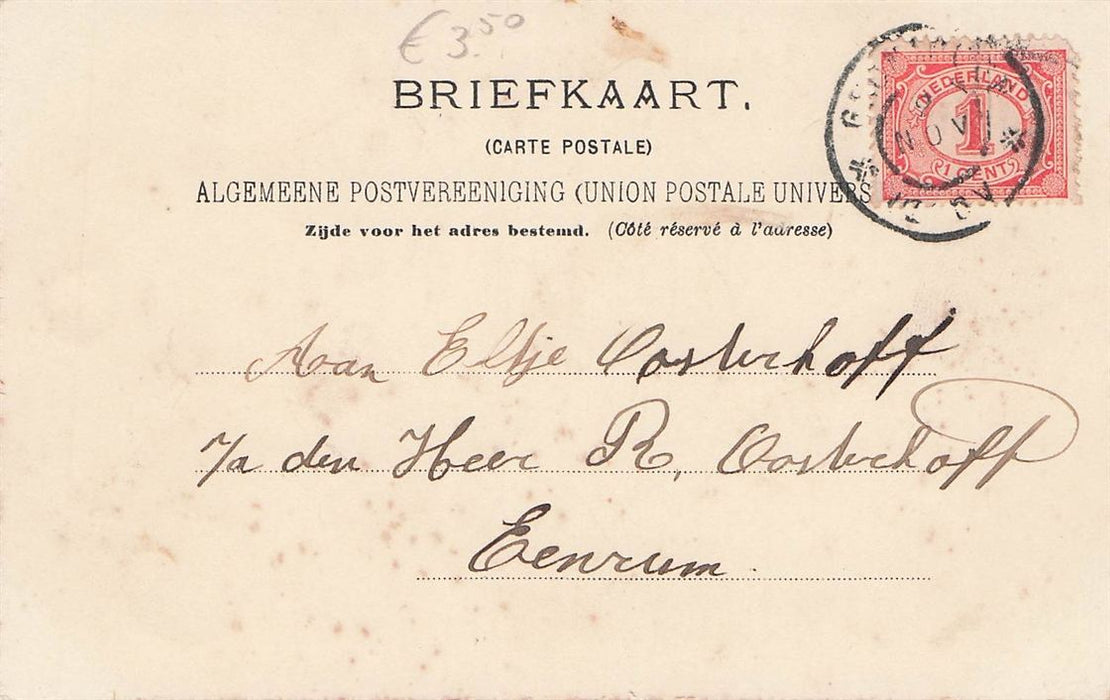 € 3.50
BRIEFKAART.
(CARTE POSTALE)
ALGEMEENE POSTVEREENIGING (UNION POSTALE UNIVERS
Zijde voor het adres bestemd. (Côté réservé à l'adresse)
NEDERLAND
1
1 CENT
NOV
Aan Eltje Oosterhoff
p/a den Heer R. Oosterhoff
Eenrum